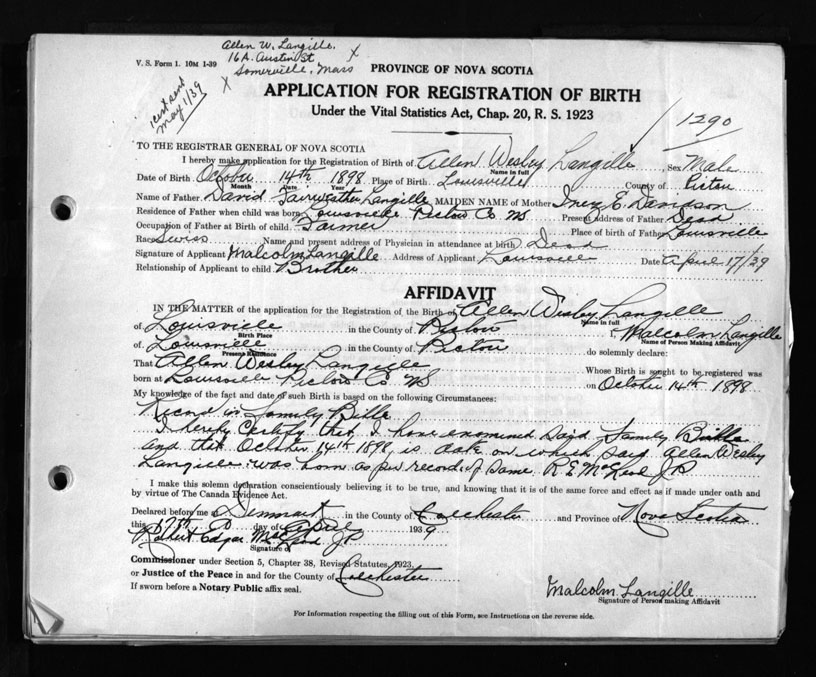 Allen W. Langille.
V. S. Form 1. 10M 1-39
16A. Austin St
Somerville, Mass
PROVINCE OF NOVA SCOTIA
cert sent
May 1/39
APPLICATION FOR REGISTRATION OF BIRTH
Under the Vital Statistics Act, Chap. 20, R. S. 1923
1290
TO THE REGISTRAR GENERAL OF NOVA SCOTIA
I hereby make application for the Registration of Birth of Allen Wesley Langille Sex Male
Name in full
Date of Birth October 14th 1898 Place of Birth Louisville County of Pictou
Month Date Year
Name of Father David Fairweather Langille MAIDEN NAME of Mother Inez E. Davidson
Residence of Father when child was born Louisville Pictou Co NS Present address of Father Dead
Occupation of Father at Birth of child Farmer Place of birth of Father Louisville
Race Swiss Name and present address of Physician in attendance at birth Dead
Signature of Applicant Malcolm Langille Address of Applicant Louisville Date April 17/39
Relationship of Applicant to child Brother
AFFIDAVIT
IN THE MATTER of the application for the Registration of the Birth of Allen Wesley Langille
Name in full
of Louisville in the County of Pictou I, Malcolm Langille
Birth Place Name of Person Making Affidavit
of Louisville in the County of Pictou do solemnly declare:
Present Residence
That Allen Wesley Langille Whose Birth is sought to be registered was
born at Louisville Pictou Co NS on October 14th 1898
My knowledge of the fact and date of such Birth is based on the following Circumstances:
Record in Family Bible
I hereby Certify that I have examined said Family Bible
and that October 14th 1898 is date on which said Allen Wesley
Langille was born as per record of same R E McLeod JP
I make this solemn declaration conscientiously believing it to be true, and knowing that it is of the same force and effect as if made under oath and
by virtue of The Canada Evidence Act.
Declared before me at in the County of Colchester and Province of Nova Scotia
this 17th day of April 1939
Robert Edgar McLeod JP
Signature of
Commissioner under Section 5, Chapter 38, Revised Statutes, 1923,
or Justice of the Peace in and for the County of Colchester
If sworn before a Notary Public affix seal.
Malcolm Langille
Signature of Person making Affidavit
For Information respecting the filling out of this Form, see Instructions on the reverse side.